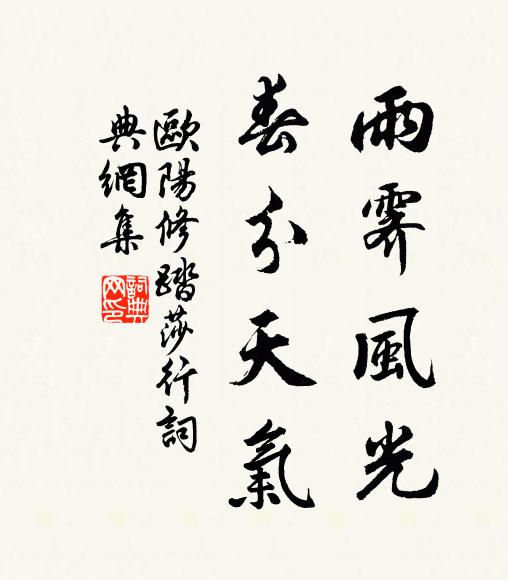 雨霽風光
春分天氣
歐陽修踏莎行詞
典網集
詞典网印